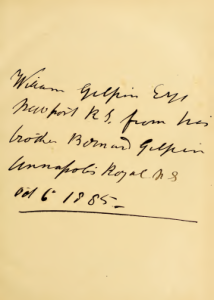 William Gilpin Esqr
Newport R.I. from his
brother Bernard Gilpin
Annapolis Royal N S
Oct 6 1885 –